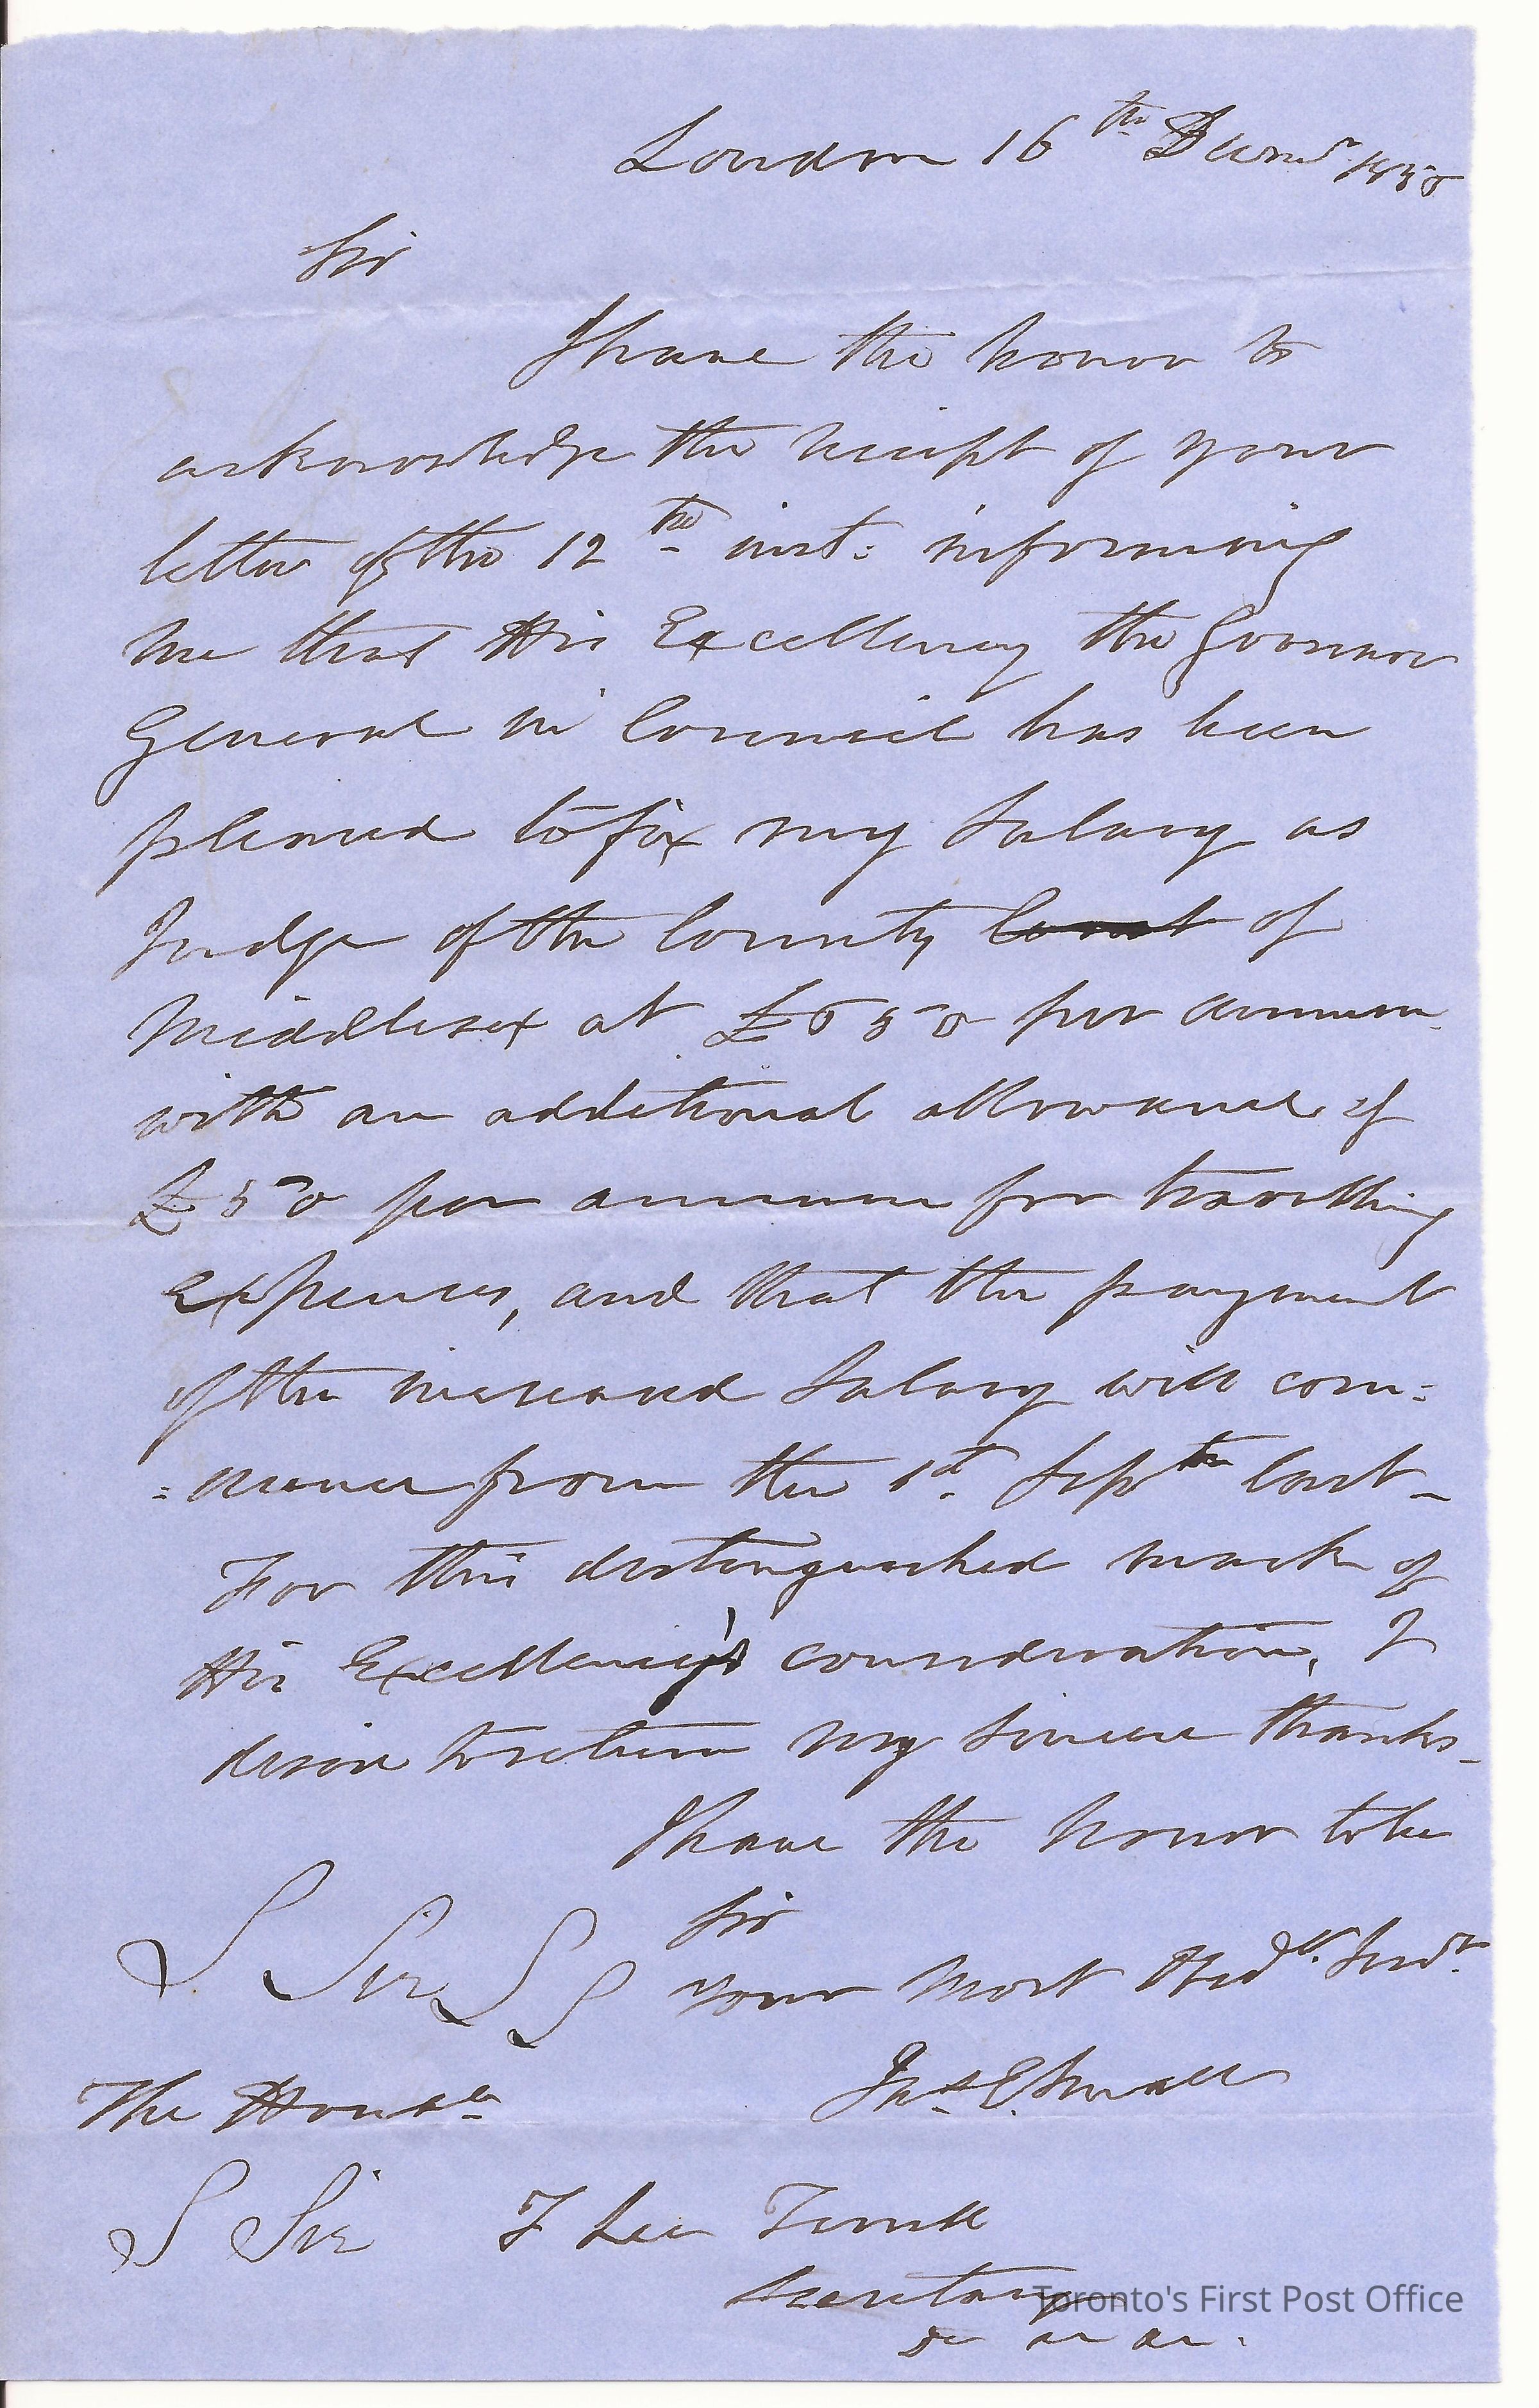 London 16th Decemr 18
Sir
I have the honor to
acknowledge the receipt of your
letter of the 12th inst: informing
me that His Excellency the Governor
General in Council has been
pleased to fix my Salary as
Judge of the County Court of
Middlesex at £650 per annum
with an additional allowance of
£50 per annum for travelling
Expenses, and that the payment
of the increased Salary will com:
=mence from the 1st Septr last_
For this distinguished mark of
His Excellency's consideration, I
desire to return my sincere thanks_
I have the honor to be
Sir
S Sir S S your most Obedt. Servt.
Jas. E. Small
The Honble
S Sir F Lee
Secretary
&c &c &c.
Toronto's First Post Office